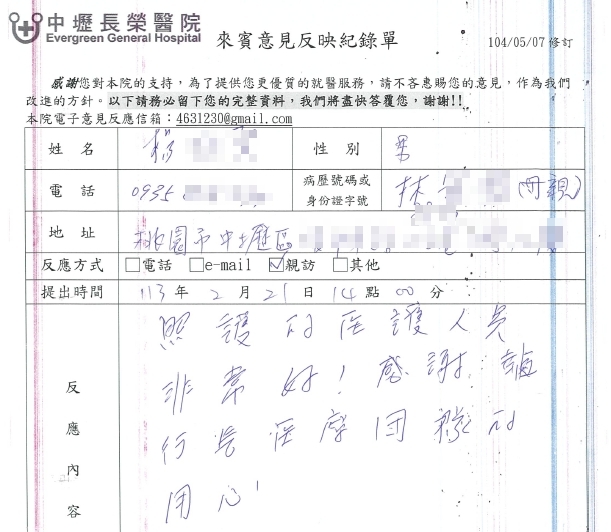 中壢長榮醫院
Evergreen General Hospital
來賓意見反映紀錄單
104/05/07 修訂
感謝您對本院的支持，為了提供您更優質的就醫服務，請不吝惠賜您的意見，作為我們
改進的方針。以下請務必留下您的完整資料，我們將盡快答覆您，謝謝!!
本院電子意見反應信箱：4631230@gmail.com
姓名 楊 性別 男
電話 0935 病歷號碼或身份證字號 林 (母親)
地址 桃園市中壢區
反應方式 □電話 □e-mail ☑親訪 □其他
提出時間 113 年 2 月 21 日 14 點 00 分
反應內容
照護的医護人員
非常好！感謝
行长医療团隊的
用心！